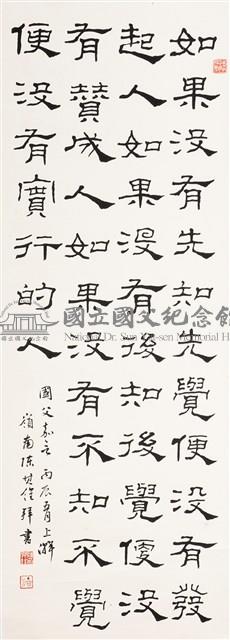 如果没有先知先覺便没有發
起人如果没有後知後覺便没
有贊成人如果没有不知不覺
便没有實行的人
國父嘉言 丙辰
嶺南陳 拜書
國立國父紀念館
National Dr. Sun Yat-sen Memorial Hall